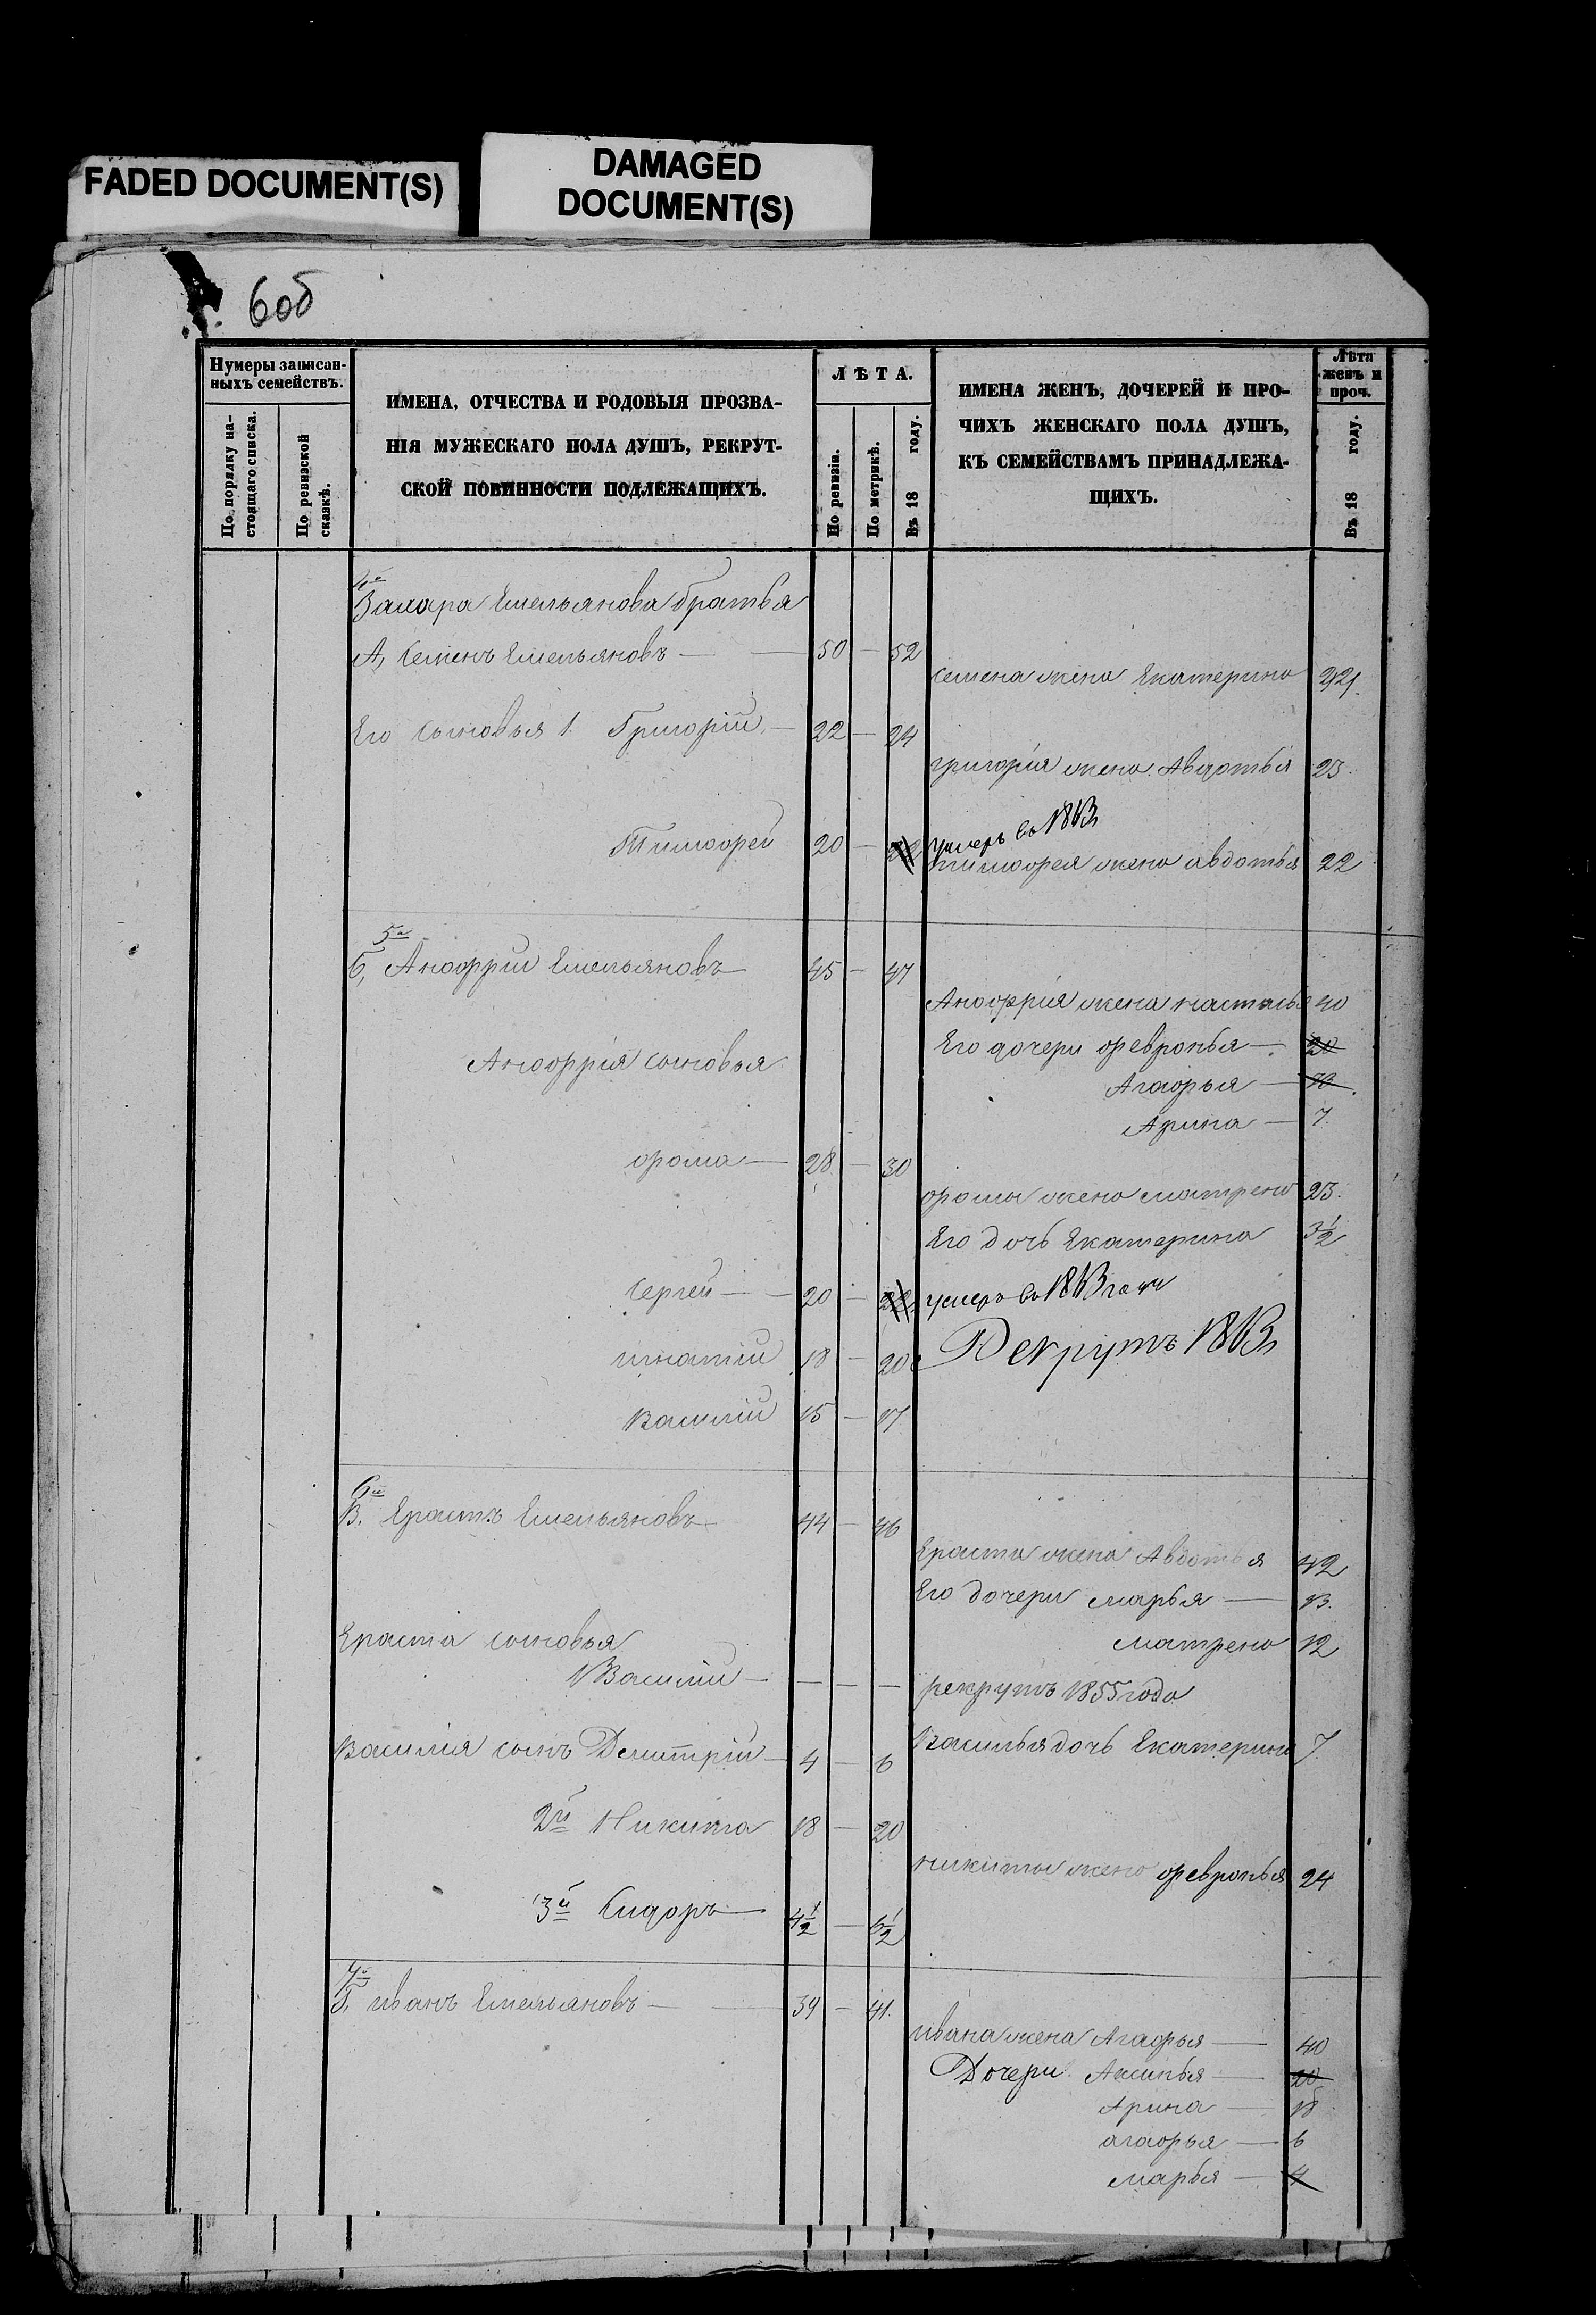 FADED DOCUMENT(S)
DAMAGED
DOCUMENT(S)
6об
Нумеры записан-
ныхъ семействъ.
По порядку на-
стоящаго списка.
По ревизской
сказкѣ.
ИМЕНА, ОТЧЕСТВА И РОДОВЫЯ ПРОЗВА-
НІЯ МУЖЕСКАГО ПОЛА ДУШЪ, РЕКРУТ-
СКОЙ ПОВИННОСТИ ПОДЛЕЖАЩИХЪ.
ЛѢТА.
По ревизіи.
По метрикѣ.
Въ 18 году.
ИМЕНА ЖЕНЪ, ДОЧЕРЕЙ И ПРО-
ЧИХЪ ЖЕНСКАГО ПОЛА ДУШЪ,
КЪ СЕМЕЙСТВАМЪ ПРИНАДЛЕЖА-
ЩИХЪ.
Лѣта
женъ и
проч.
Въ 18 году.
Захара Емельянова братья
А, Семенъ Емельяновъ — 50 — 52
Семена жена Екатерина
Его сыновья 1 Григорій — 22 — 24
григорія жена Авдотья 23
Тимофей 20 —
умеръ въ
тимофея жена авдотья 22
5й
Б, Анофрій Емельяновъ 45 — 47
Анофрія жена настасья 40
Его дочери февронья — 20
Анофрія сыновья
Агафья —
Арина — 7
фома — 28 — 30
фомы жена матрена 23
Его дочь Екатерина 3½
Сергей — 20 — 22
умеръ въ
игнатій 18 — 20
Рекрутъ
Василій 15 — 17
6й
В. Ерастъ Емельяновъ 44 — 46
Ераста жена Авдотья 42
Его дочери марья — 13
Ераста сыновья
матрена 12
1 Василій — — — —
рекрутъ 1855 года
Василія сынъ Демитрій — 4 — 6
Василья дочь Екатерина 7
2й Никита 18 — 20
никиты жена февронья 24
3й Сидоръ — 4½ — 6½
7й
Г. иванъ Емельяновъ — 39 — 41
ивана жена Агафья — 40
Дочери Аксинья — 20
Арина — 18
агафья — 6
марья — 4